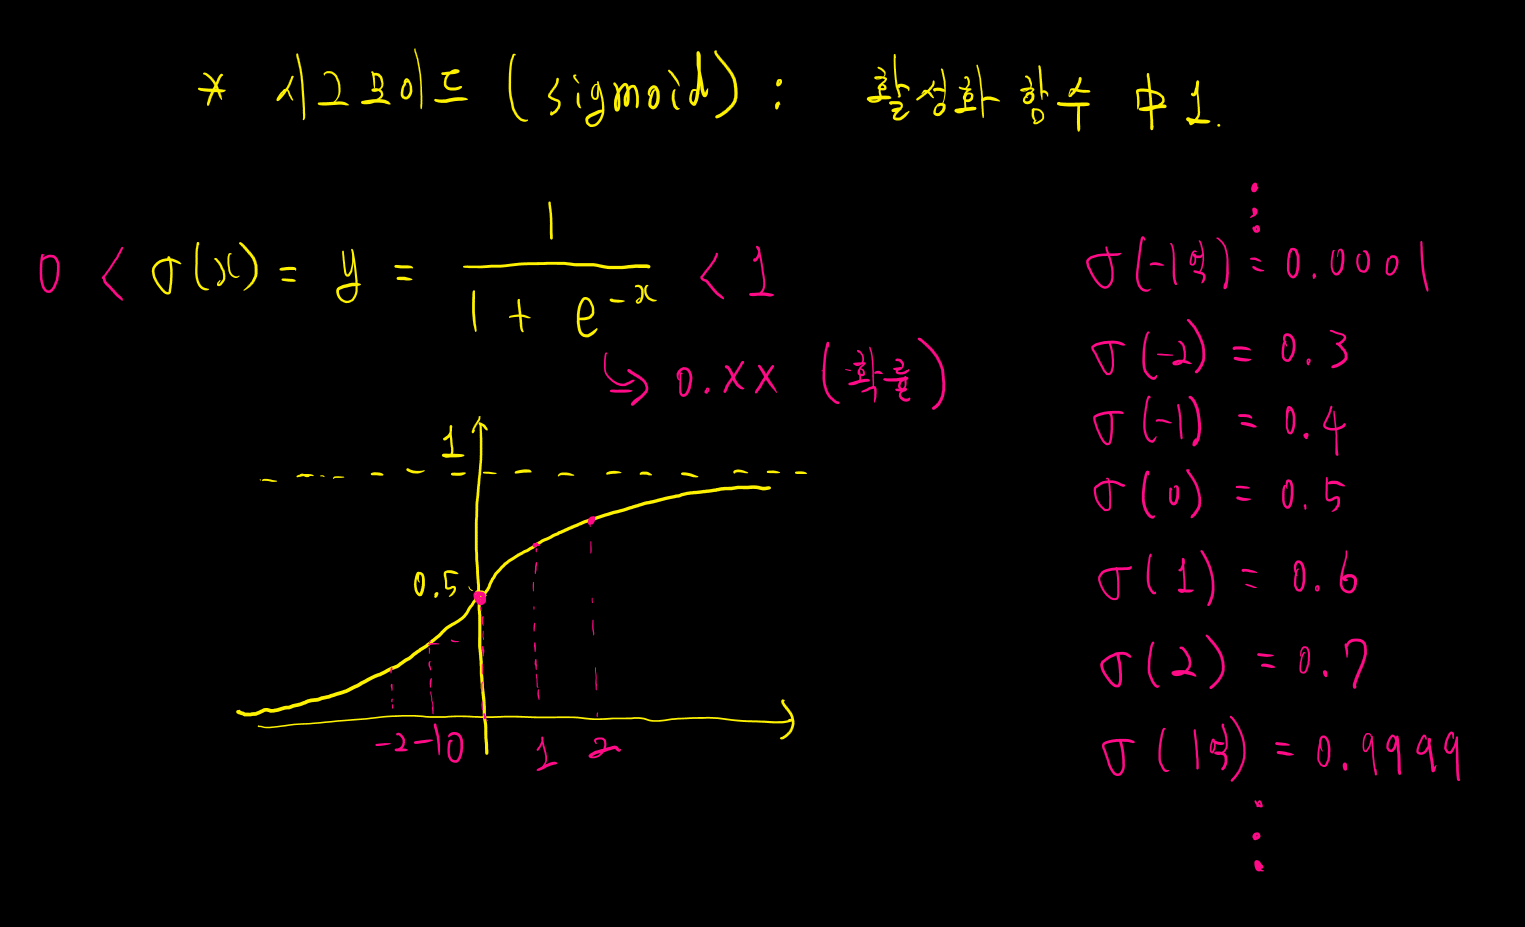 * 시그모이드 (sigmoid) : 활성화 함수 中 1.
0 < σ(x) = y = 1 / (1 + e^-x) < 1
↳ 0.XX (확률)
1
0.5
-2 -1 0 1 2
⋮
σ(-1억) = 0.0001
σ(-2) = 0.3
σ(-1) = 0.4
σ(0) = 0.5
σ(1) = 0.6
σ(2) = 0.7
σ(1억) = 0.9999
⋮